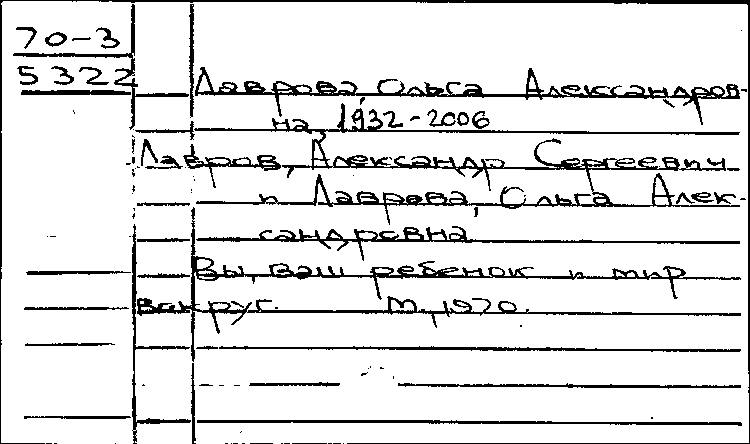 70-3
5322
Лаврова, Ольга Александров-
на, 1932-2006
Лавров, Александр Сергеевич
и Лаврова, Ольга Алек-
сандровна
Вы, ваш ребенок и мир
вокруг. М., 1970.